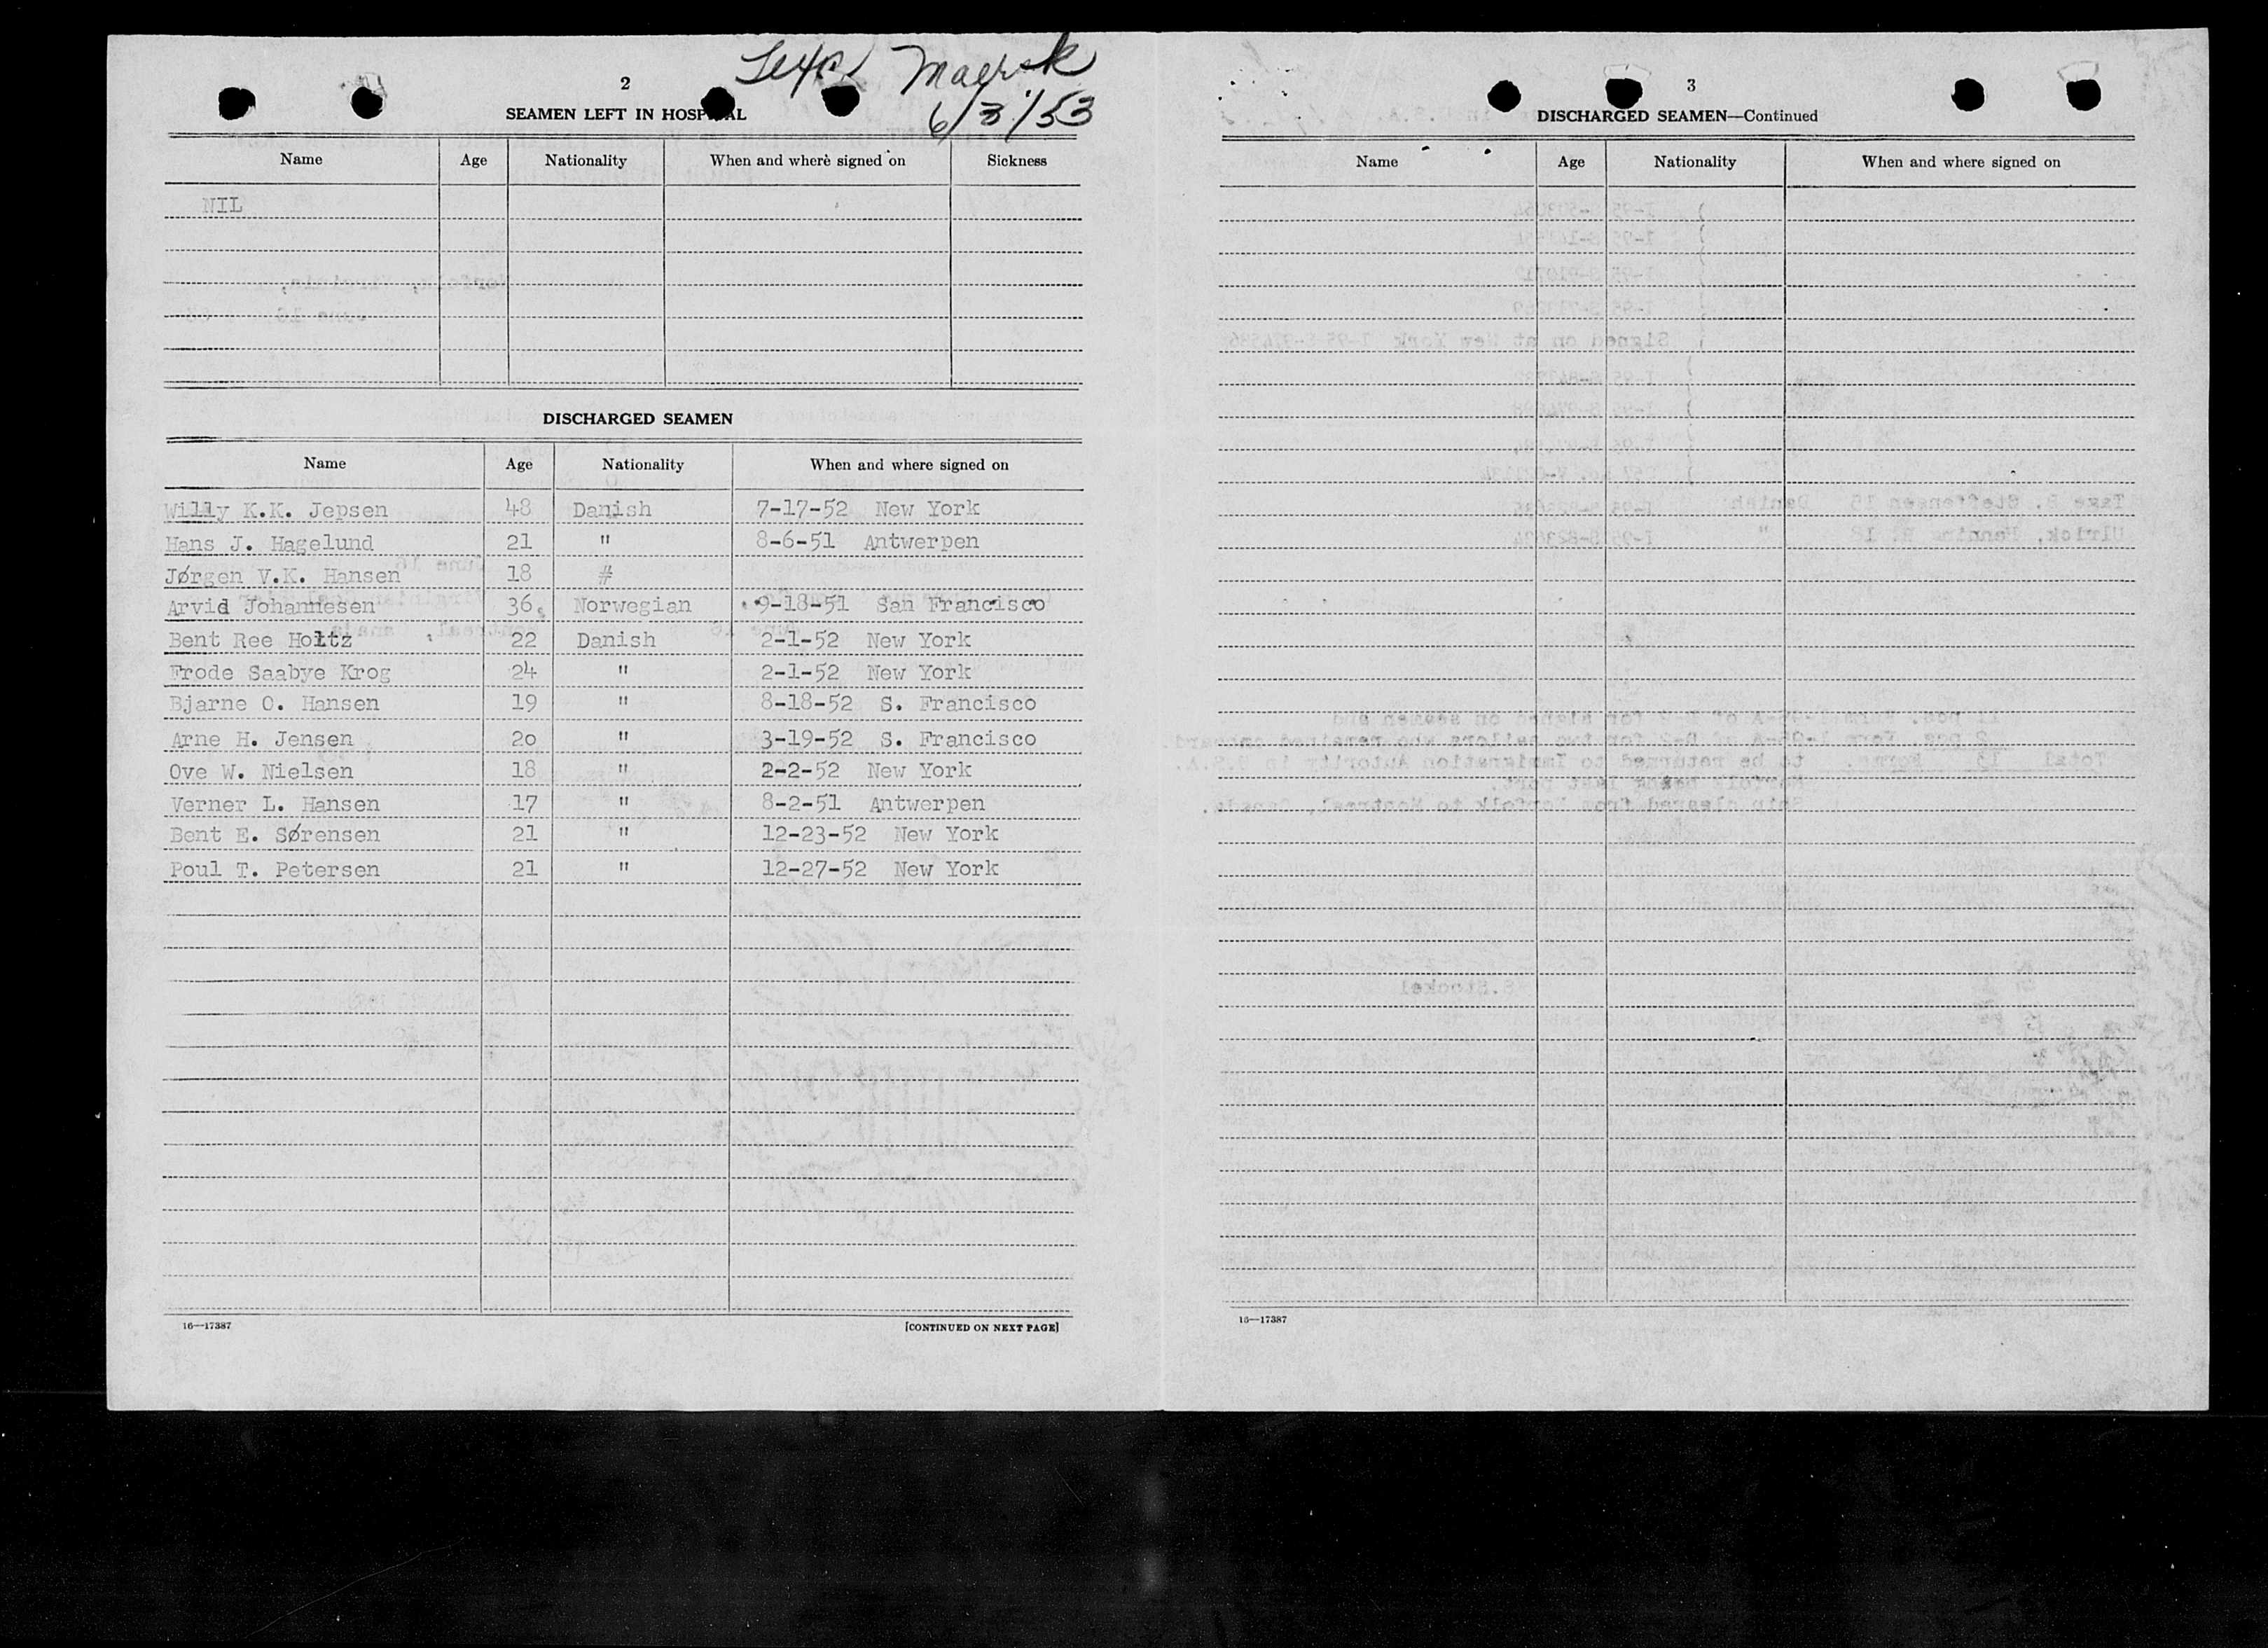 Maersk
6/3/53
2
SEAMEN LEFT IN HOSPITAL
Name Age Nationality When and where signed on Sickness
NIL
DISCHARGED SEAMEN
Name Age Nationality When and where signed on
Willy K.K. Jepsen 48 Danish 7-17-52 New York
Hans J. Hagelund 21 " 8-6-51 Antwerpen
Jørgen V.K. Hansen 18 #
Arvid Johannesen 36 Norwegian 9-18-51 San Francisco
Bent Ree Holtz 22 Danish 2-1-52 New York
Frode Saabye Krog 24 " 2-1-52 New York
Bjarne O. Hansen 19 " 8-18-52 S. Francisco
Arne H. Jensen 20 " 3-19-52 S. Francisco
Ove W. Nielsen 18 " 2-2-52 New York
Verner L. Hansen 17 " 8-2-51 Antwerpen
Bent E. Sørensen 21 " 12-23-52 New York
Poul T. Petersen 21 " 12-27-52 New York
16—17387 [CONTINUED ON NEXT PAGE]
3
DISCHARGED SEAMEN—Continued
Name Age Nationality When and where signed on
16—17387